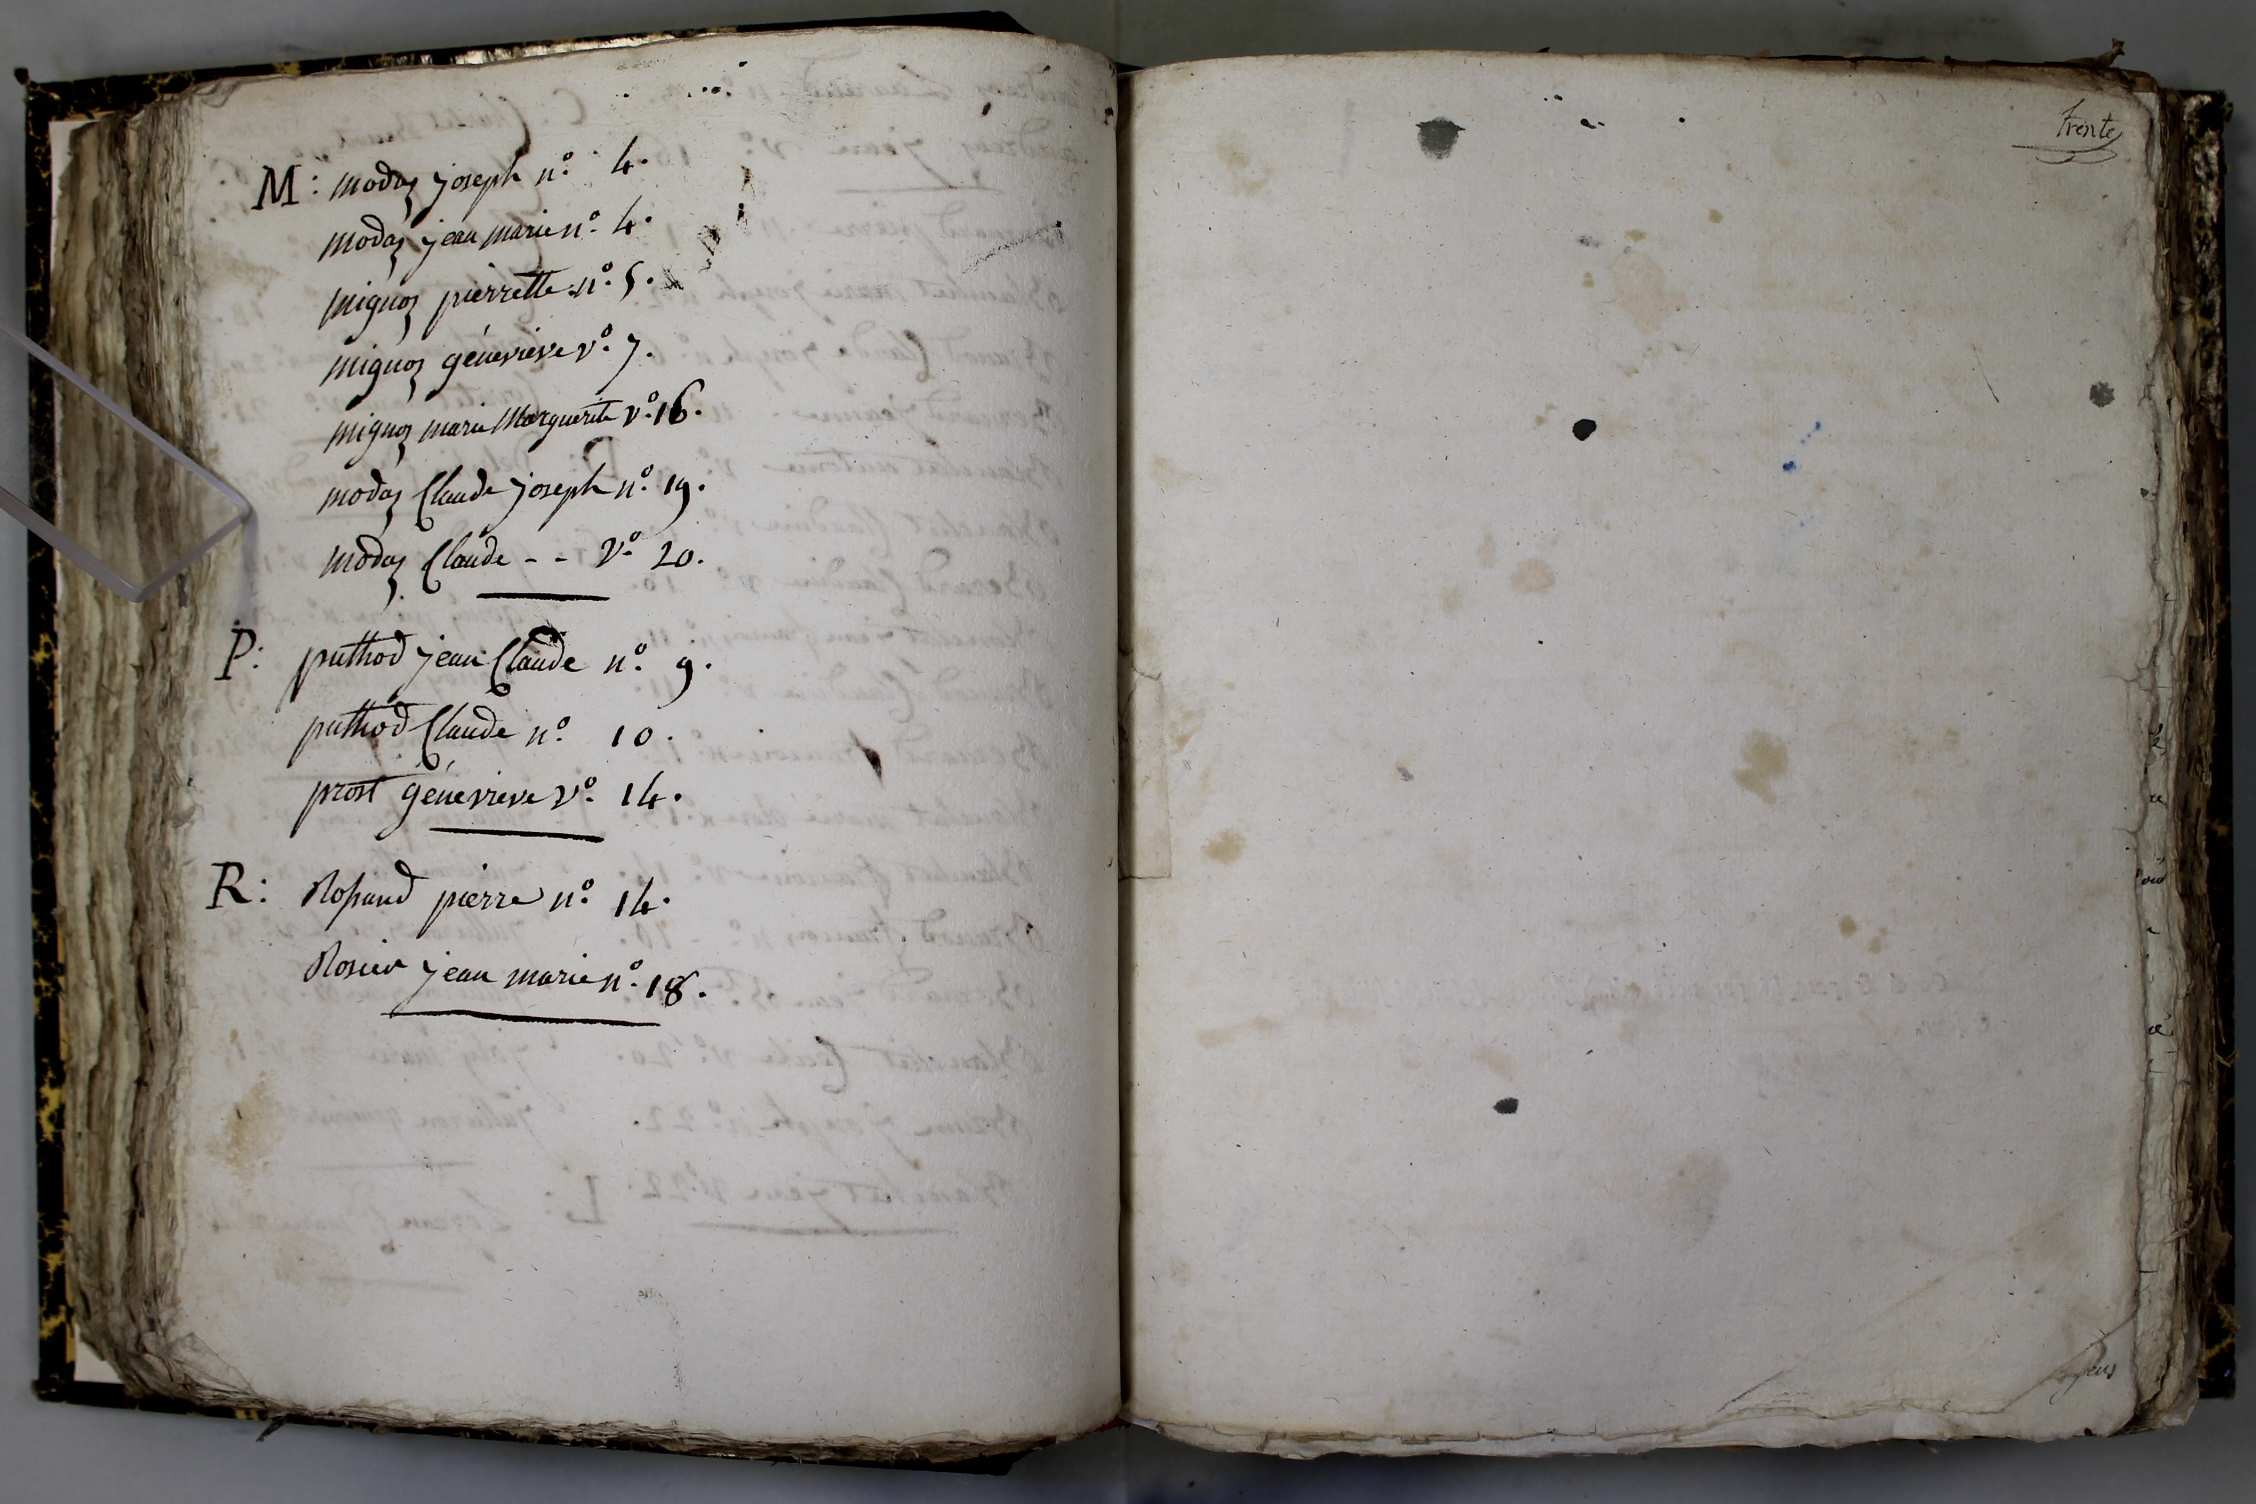 M: modas joseph n.° 4.
modas jean marie n.° 4.
mignos pierrette n.° 5.
mignos géneviève v.° 7.
mignos marie Marguerite v.° 16.
modas Claude joseph n.° 19.
modas Claude - - v.° 20.
P: puthod jean Claude n.° 9.
puthod Claude n.° 10.
prost géneviève v.° 14.
R: Rossand pierre n.° 14.
Rosier jean marie n.° 18.
trente